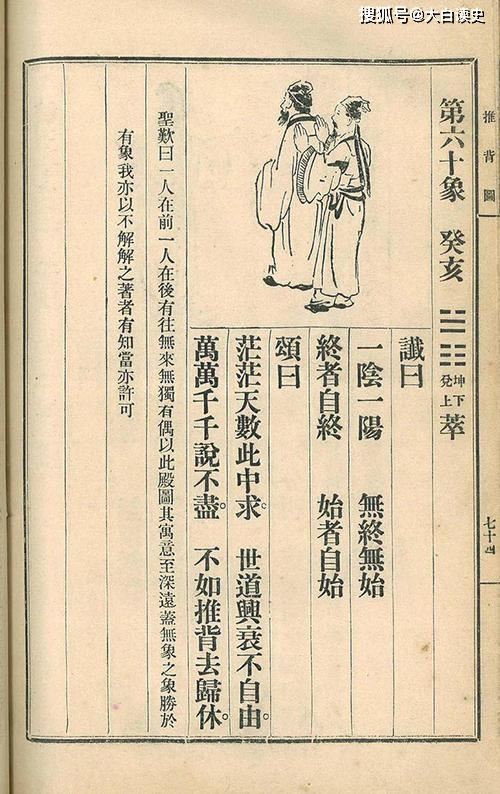 搜狐号@大白读史
推背圖
七十四
第六十象 癸亥 ☱☷ 坤下兌上 萃
讖曰
一陰一陽 無終無始
終者自終 始者自始
頌曰
茫茫天數此中求。 世道興衰不自由。
萬萬千千說不盡。 不如推背去歸休。
聖歎曰一人在前一人在後有往無來無獨有偶以此殿圖其寓意至深遠蓋無象之象勝於
有象我亦以不解解之著者有知當亦許可